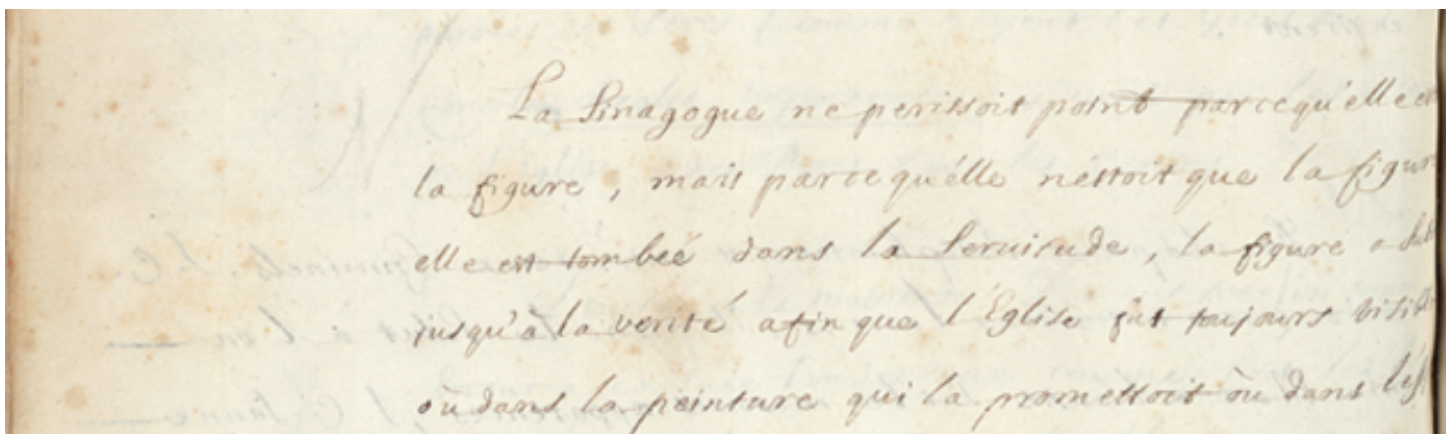 La Sinagogue ne perissoit point parcequ'elle
la figure, mais parce qu'élle n'éstoit que la figur
elle est tombeé dans la Seruitude, la figure a
jusqu'à la verité afin que l'Eglise fut toujours visib
où dans la peinture qui la promettoit où dans